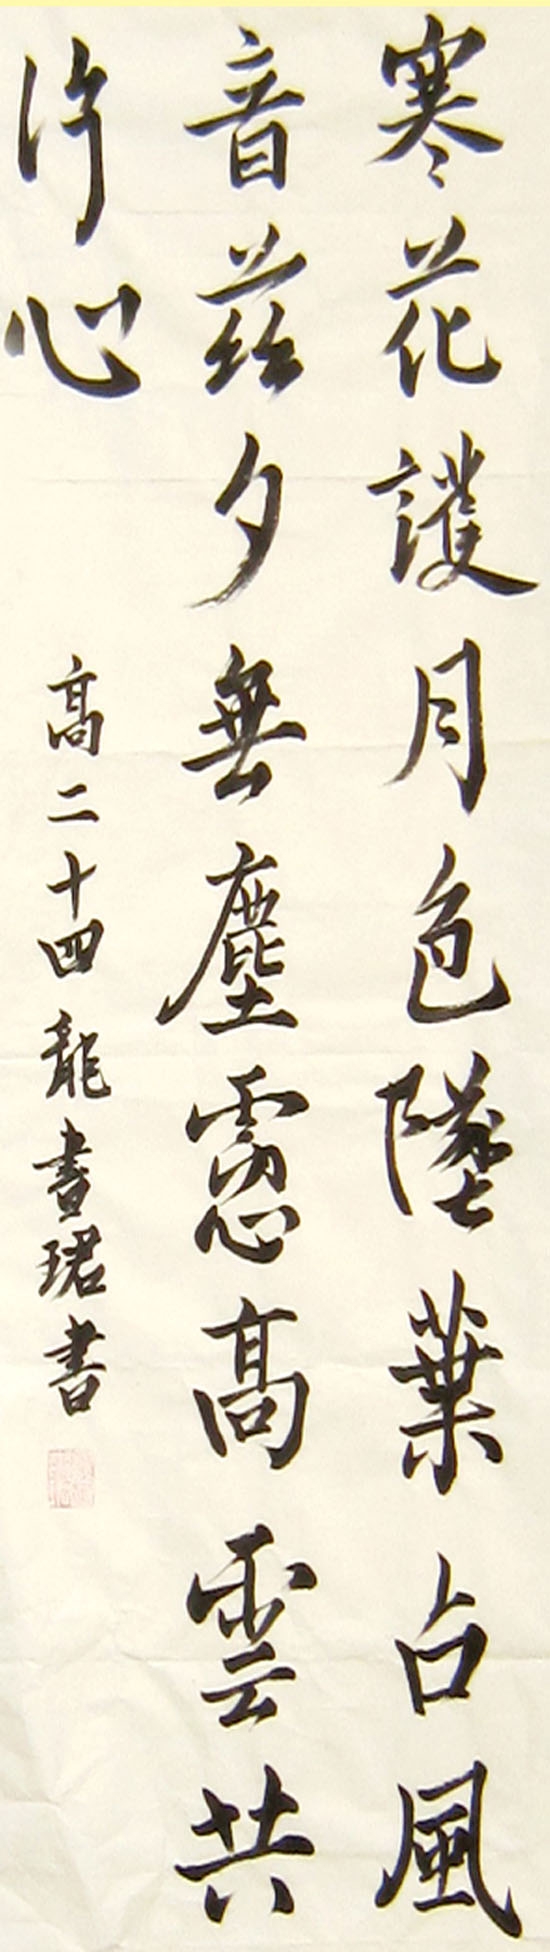 寒花護月色墜葉占風
音茲夕無塵慮高雲共
片心
高二十四龍珺書